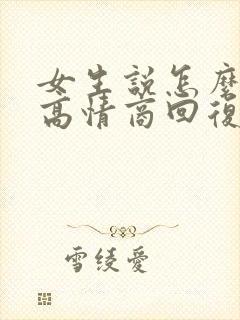 女生說怎麼
高情商回復
雪綾愛